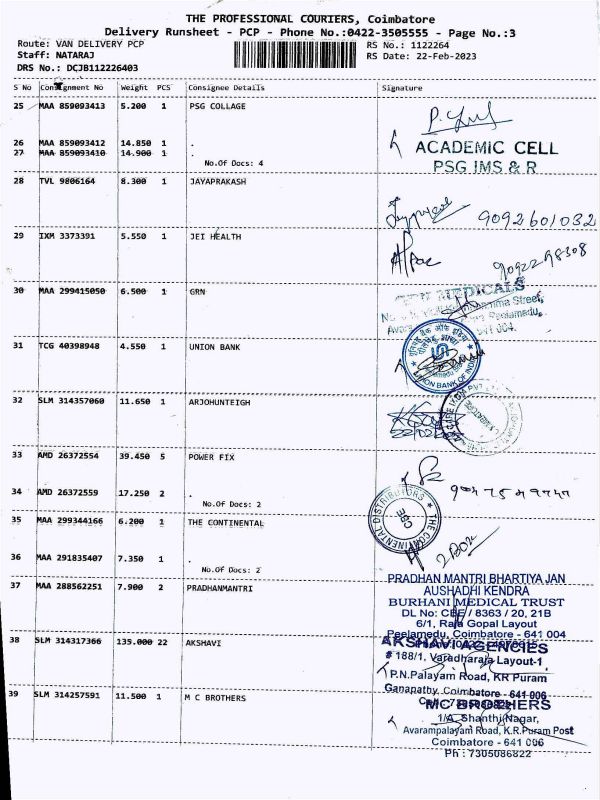 THE PROFESSIONAL COURIERS, Coimbatore
Delivery Runsheet - PCP - Phone No.:0422-3505555 - Page No.:3
Route: VAN DELIVERY PCP RS No.: 1122264
Staff: NATARAJ RS Date: 22-Feb-2023
DRS No.: DCJB112226403
S No Consignment No Weight PCS Consignee Details Signature
25 MAA 859093413 5.200 1 PSG COLLAGE
26 MAA 859093412 14.850 1 .
27 MAA 859093410 14.900 1 .
No.Of Docs: 4
ACADEMIC CELL
PSG IMS & R
28 TVL 9806164 8.300 1 JAYAPRAKASH
9092601032
29 IXM 3373391 5.550 1 JEI HEALTH
9092298308
30 MAA 299415050 6.500 1 GRN
MEDICALS
Street,
Peelamedu,
641 004.
31 TCG 40398948 4.550 1 UNION BANK
UNION BANK OF INDIA
32 SLM 314357060 11.650 1 ARJOHUNTEIGH
33 AMD 26372554 39.450 5 POWER FIX
34 AMD 26372559 17.250 2 .
No.Of Docs: 2
35 MAA 299344166 6.200 1 THE CONTINENTAL
THE CONTINENTAL DISTRIBUTORS
CBE
36 MAA 291835407 7.350 1 .
No.Of Docs: 2
37 MAA 288562251 7.900 2 PRADHANMANTRI
PRADHAN MANTRI BHARTIYA JAN
AUSHADHI KENDRA
BURHANI MEDICAL TRUST
DL No: CBE / 8363 / 20, 21B
6/1, Raja Gopal Layout
Peelamedu, Coimbatore - 641 004
38 SLM 314317366 135.000 22 AKSHAVI
AKSHAVI AGENCIES
# 188/1, Varadharaja Layout-1
P.N.Palayam Road, KR Puram
Ganapathy, Coimbatore - 641 006
39 SLM 314257591 11.500 1 M C BROTHERS
MC BROTHERS
1/A, Shanthi Nagar,
Avarampalayam Road, K.R.Puram Post
Coimbatore - 641 006
Ph : 7305086822